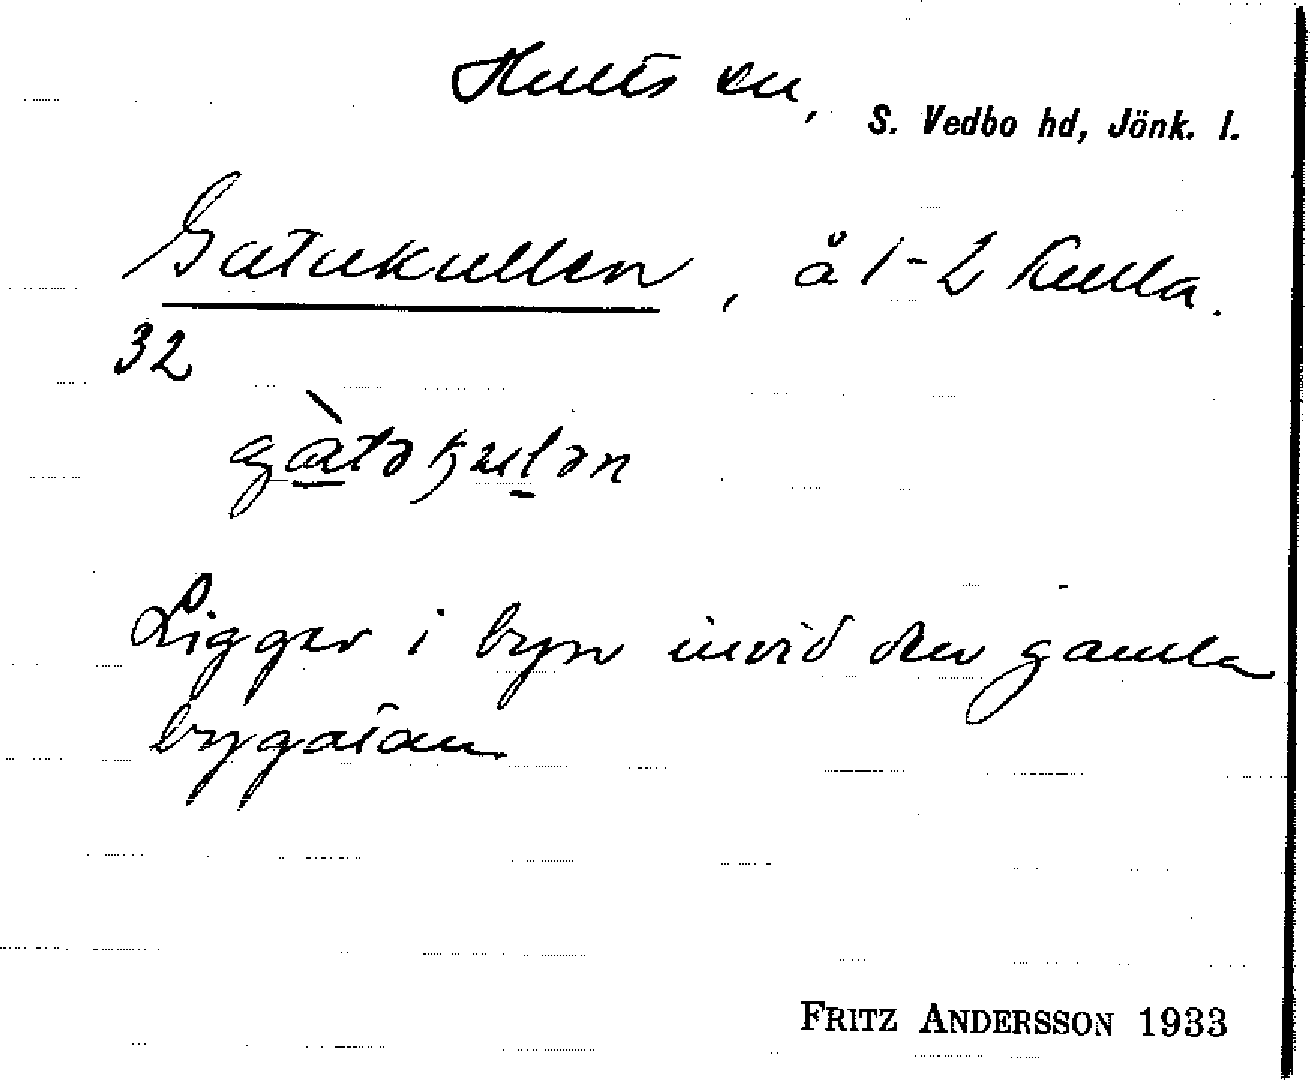 Hults sn,
S. Vedbo hd, Jönk. l.
Gatukullen, å 1-2 Kulla.
32
gàtəkulən
Ligger i byn invid den gamla
bygatan
FRITZ ANDERSSON 1933